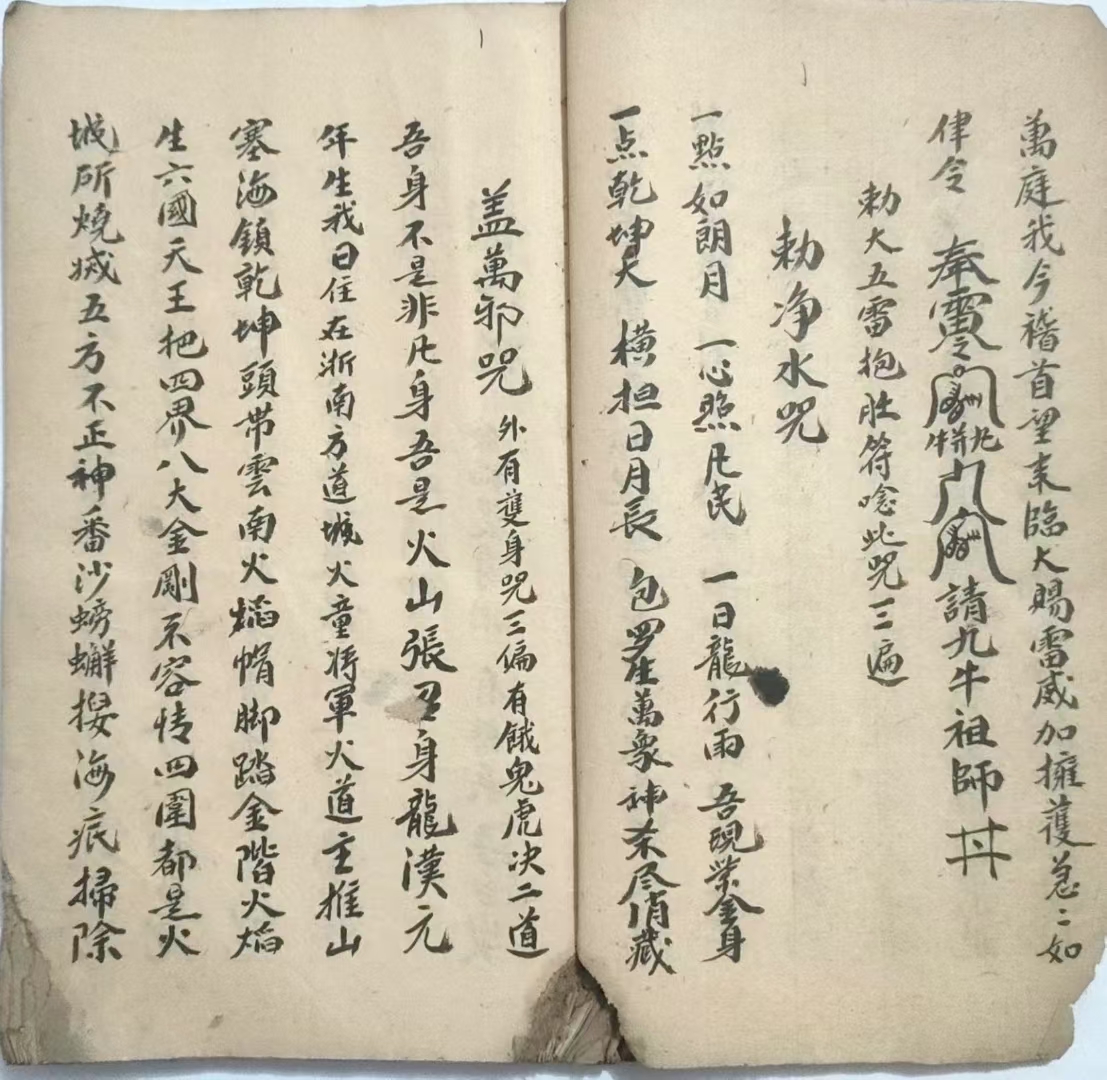 萬庭我今稽首望来臨大賜雷威加擁護急二如
律令 奉 請九牛祖師 丼
勅大五雷抱肚符唸此咒三遍
勅净水咒
一點如朗月 一心照凡民 一日龍行雨 吾現紫金身
一点乾坤大 横担日月長 包罗生萬衆 神杀尽消藏
盖萬邪咒 外有護身咒三偏有餓鬼虎决二道
吾身不是非凡身吾是火山張 身龍漢元
年生我日住在浙南方道城火童将軍火道主推山
塞海鎖乾坤頭带雲南火焰帽脚踏金階火焰
生六國天王把四界八大金剛不容情四圍都是火
城所燒滅五方不正神番沙螃蠏 海 掃除